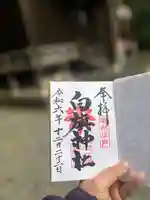 奉拝
白旗神社
令和六年十二月二十二日